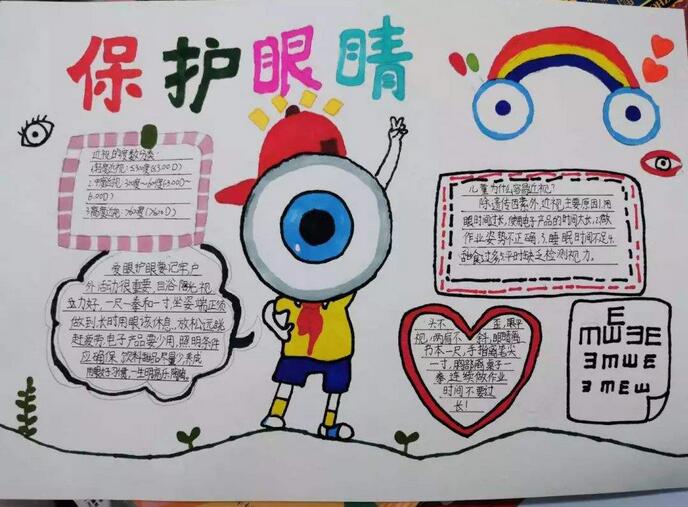 保护眼睛
近视的度数分类:
1.轻度近视:≤300度(≤3.00D)
2.中度近视:300度~600度(3.00D~
6.00D)
3.高度近视:>600度(>6.00D)
爱眼护眼要记牢户
外活动很重要,目浴阳光视
力好,一尺一拳和一寸,坐姿端正须
做到长时用眼该休息,放松远眺
赶疲劳电子产品要少用,照明条件
应确保,饮料甜品尽量少养成
用眼好习惯,一生明亮乐陶陶.
儿童为什么容易近视?
除遗传因素外,近视主要原因1.用
眼时间过长,使用电子产品的时间太长,2.做
作业姿势不正确,3.睡眠时间不足4.
甜食过多5.平时缺乏检测视力。
头不 歪,眼平
视,两肩不 斜,眼睛离
书本一尺,手指离笔尖
一寸,胸部离桌子一
拳连续做作业
时间不要过
长!
E
E M W Ǝ E
Ǝ M W E
Ǝ M E W